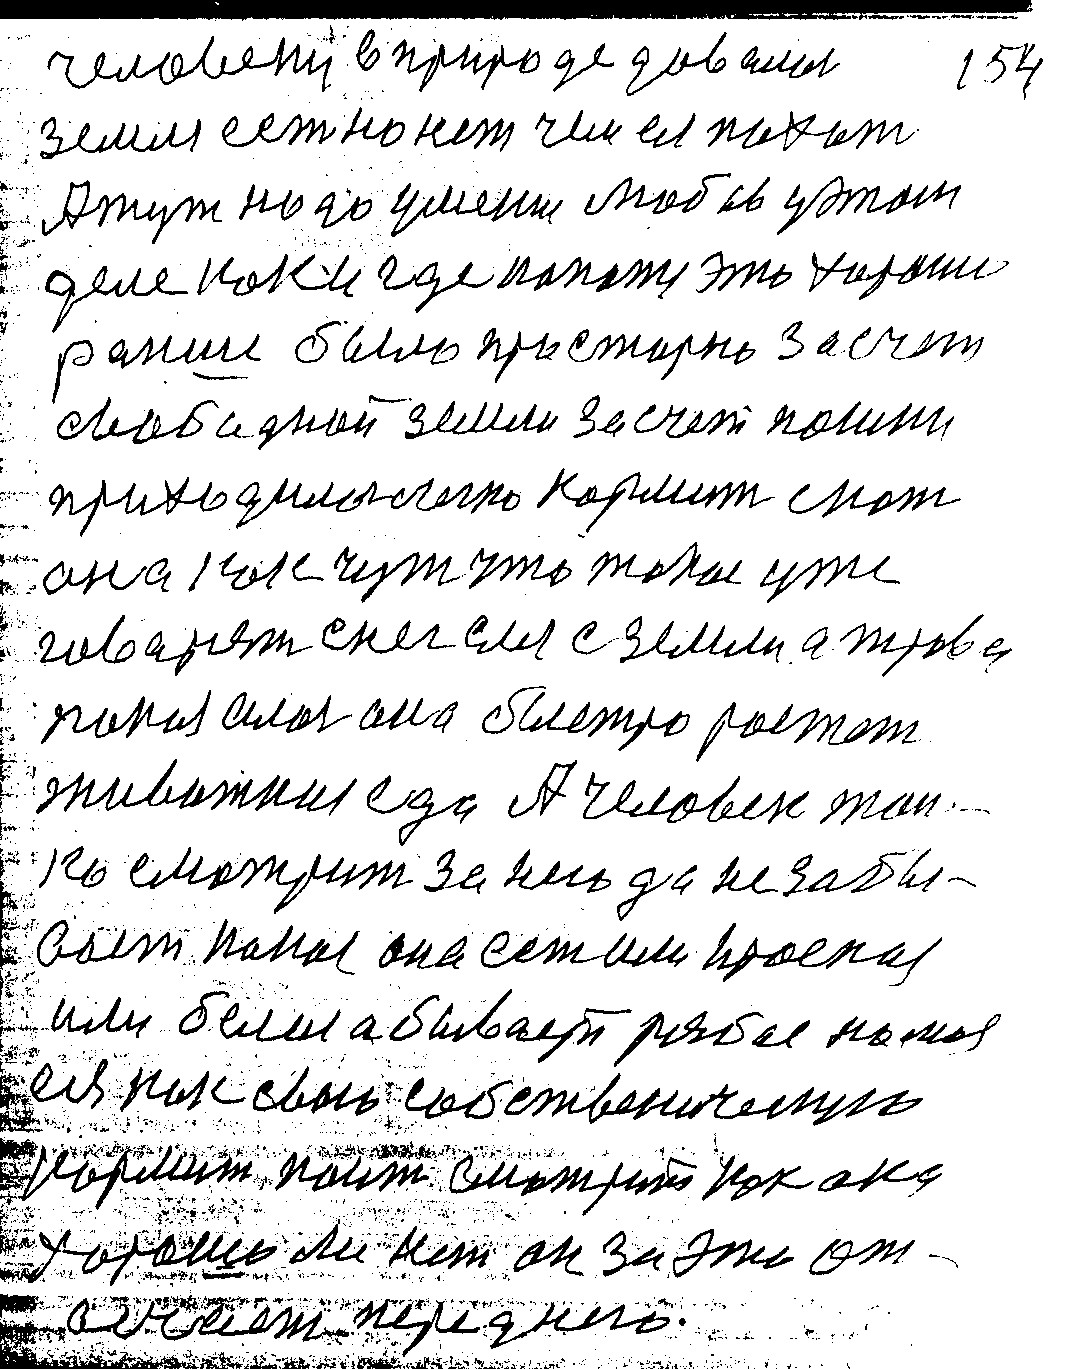 человеку в природе давалась 154
земля есть но нет чем ея пахат
А тут надо умение любовь у этом
деле как и где копат это хорошо
ранше было просторно за счет
свободной земли за счет пашни
приходилось легко кормит скот
она как чут что такое уже
говарят снег сшел с земли а трова
показалась она быстро ростет
животная еда А человек тол-
ко смотрит за нею да не забы-
вает какая она есть или красная
или белая а бывает рябая
ея как свою собственическую
кормит, поит смотрит как она
хорошо ли нет он за это от-
вечает перед нею.